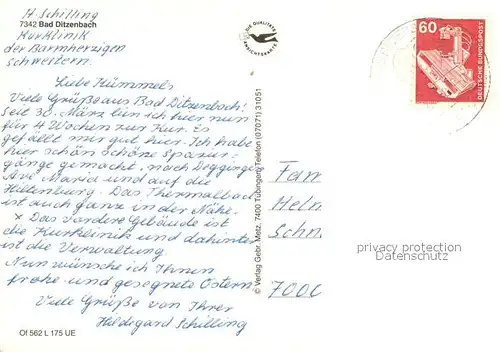 H. Schilling
7342 Bad Ditzenbach
Kurklinik
der Barmherzigen
Schwestern.
Liebe Hümmels
Viele Grüße aus Bad Ditzenbach!
Seit 30. März bin ich hier nun
für 4 Wochen zur Kur. Es
gefällt mir gut hier. Ich habe
hier schon schöne Spazier-
gänge gemacht, nach Deggingen
Ave Maria und auf die
Hiltenburg. Das Thermalbad
ist auch ganz in der Nähe.
x Das vordere Gebäude ist
die Kurklinik und dahinter
ist die Verwaltung
Nun wünsche ich Ihnen
frohe und gesegnete Ostern
Viele Grüße von Ihrer
Hildegard Schilling
Of 562 L 175 UE
DIE QUALITÄTS
ANSICHTSKARTE
© Verlag Gebr. Metz, 7400 Tübingen, Telefon (07071) 31051
60
DEUTSCHE BUNDESPOST
Fam
Heln
Schn
7000
privacy protection
Datenschutz